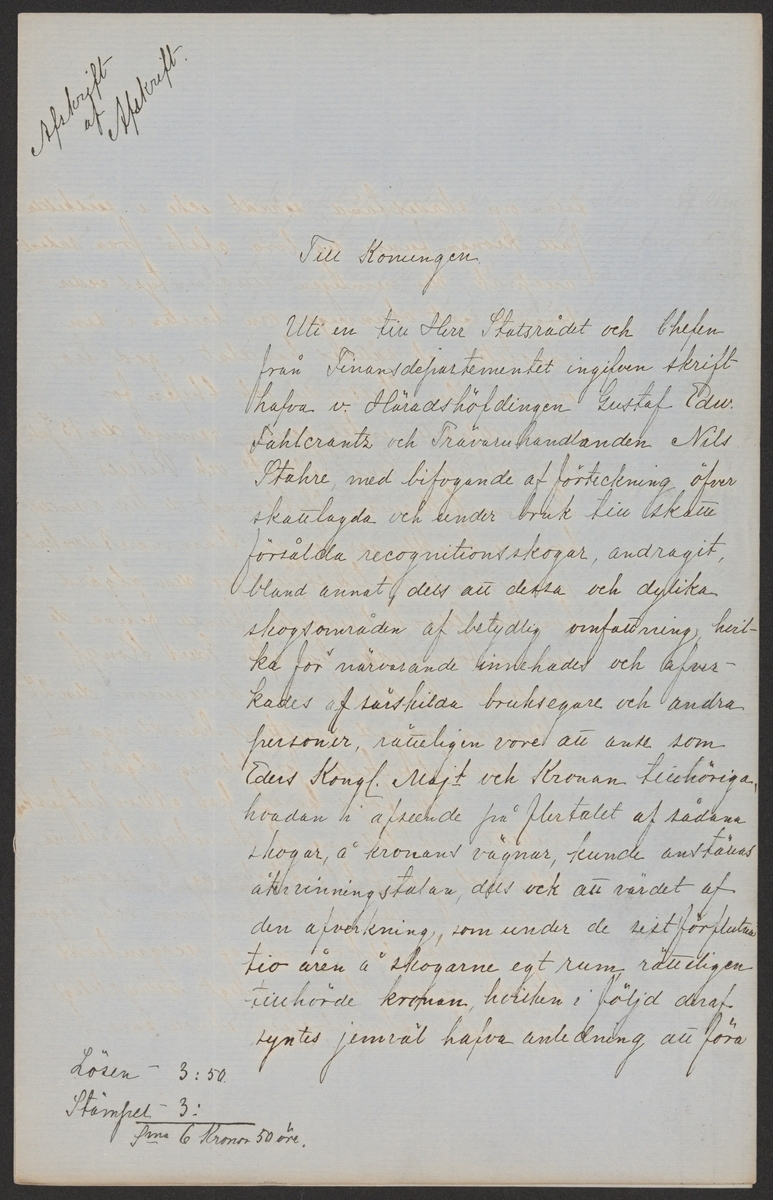 Afskrift
af
Afskrift.
Till Konungen
Uti en till Herr Statsrådet och Chefen
från Finansdepartementet ingifven skrift
hafva v. Häradshöfdingen Gustaf Edw.
Fahlcrantz och Trävaruhandlanden Nils
Stahre, med bifogande af förteckning öfver
skattlagda och under bruk till skatt
försålda recognitionsskogar, andragit,
bland annat, dels att dessa och dylika
skogsområden af betydlig omfattning, hvil-
ka för närvarande innehades och afver-
kades af särskilda bruksegare och andra
personer, rätteligen vore att anse som
Eders Kongl. Majt och Kronan tillhöriga,
hvadan i afseende på flertalet af sådana
skogar, å kronans vägnar, kunde anställas
återvinningstalan, dels ock att värdet af
den afverkning, som under de sist förflutna
tio åren å skogarne egt rum rätteligen
tillhörde kronan, hvilken i följd deraf
syntes jemväl hafva anledning att föra
Lösen - 3:50.
Stämpel - 3:
Sma 6 Kronor 50 öre.